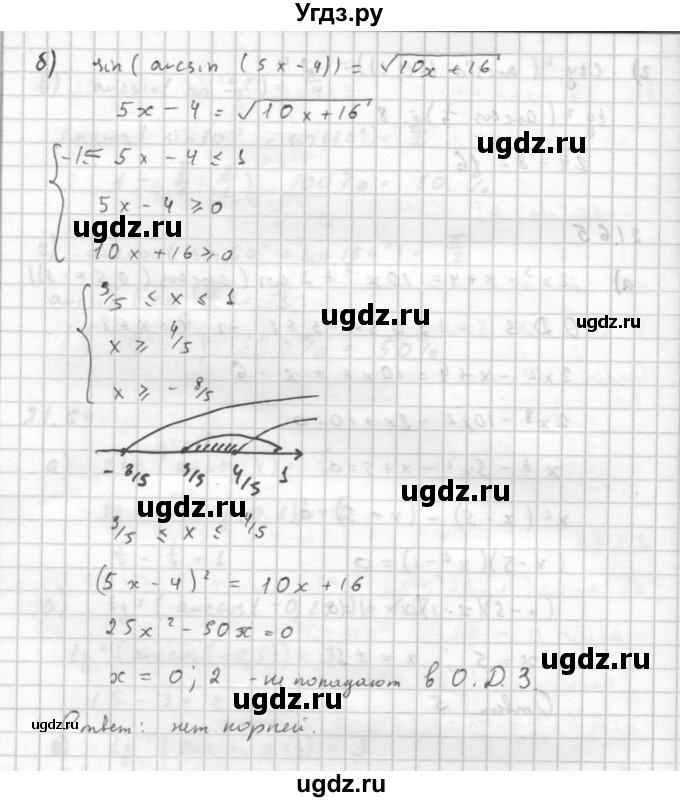 Угдз.ру
б) sin(arcsin(5x-4)) = √10x+16
5x-4 = √10x+16
-1≤ 5x-4≤1
5x-4≥0
ugdz.ru ugdz.ru
10x+16≥0
3/5 ≤ x ≤ 1
ugdz.ru ugdz.ru
x ≥ 4/5
x ≥ -8/5
-8/5 3/5 4/5 1
ugdz.ru ugdz.ru
3/5 ≤ x ≤ 4/5
(5x-4)² = 10x+16
ugdz.ru
25x²-50x=0
x = 0; 2 - не попадают в О.Д.З.
ugdz.ru ugdz.ru
ugdz.ru Ответ: нет корней.
ugdz.ru